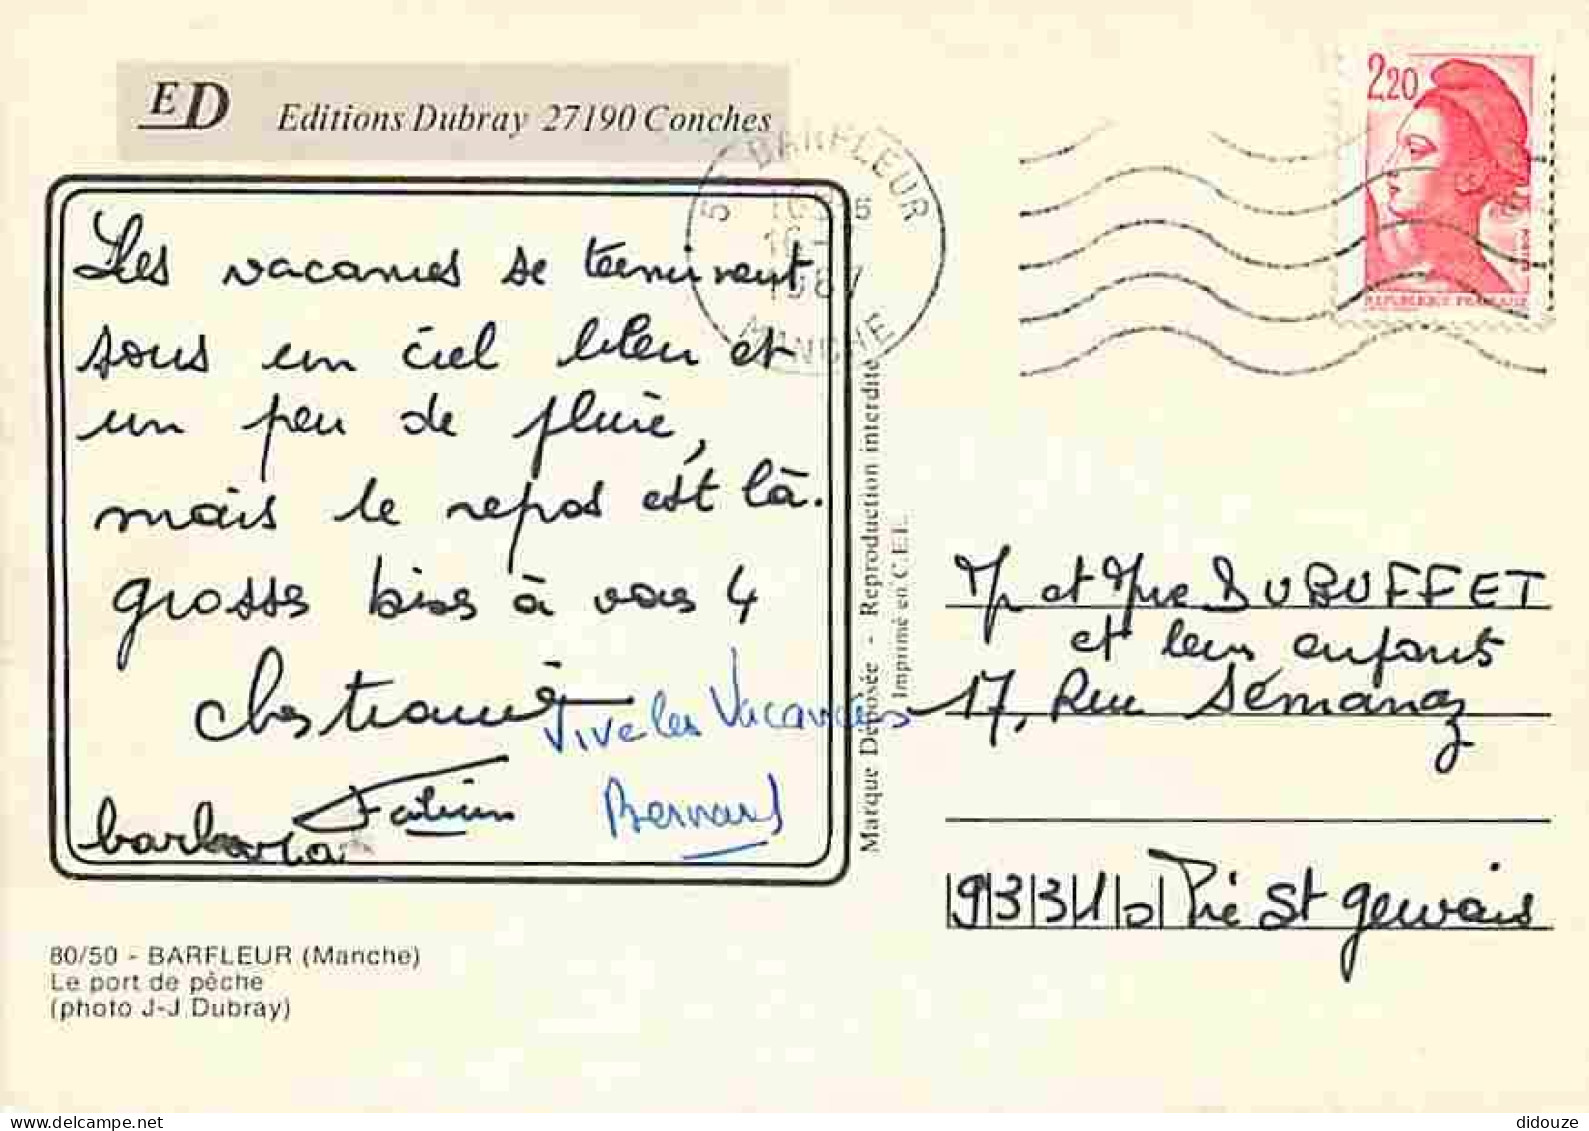 ED Editions Dubray 27190 Conches
BARFLEUR
1987
MANCHE
2,20
REPUBLIQUE FRANÇAISE
Les vacances se terminent
sous un ciel bleu et
un peu de pluie,
mais le repos est là.
grosses bises à vous 4
Christiane
Vive les Vacances
Fabien
Bernard
barbara
Marque Déposée - Reproduction interdite
Imprimé en C.E.E.
Mr et Mme DUBUFFET
et leurs enfants
17, Rue Sémanaz
93310 Pré St Gervais
80/50 - BARFLEUR (Manche)
Le port de pêche
(photo J-J Dubray)
didouze